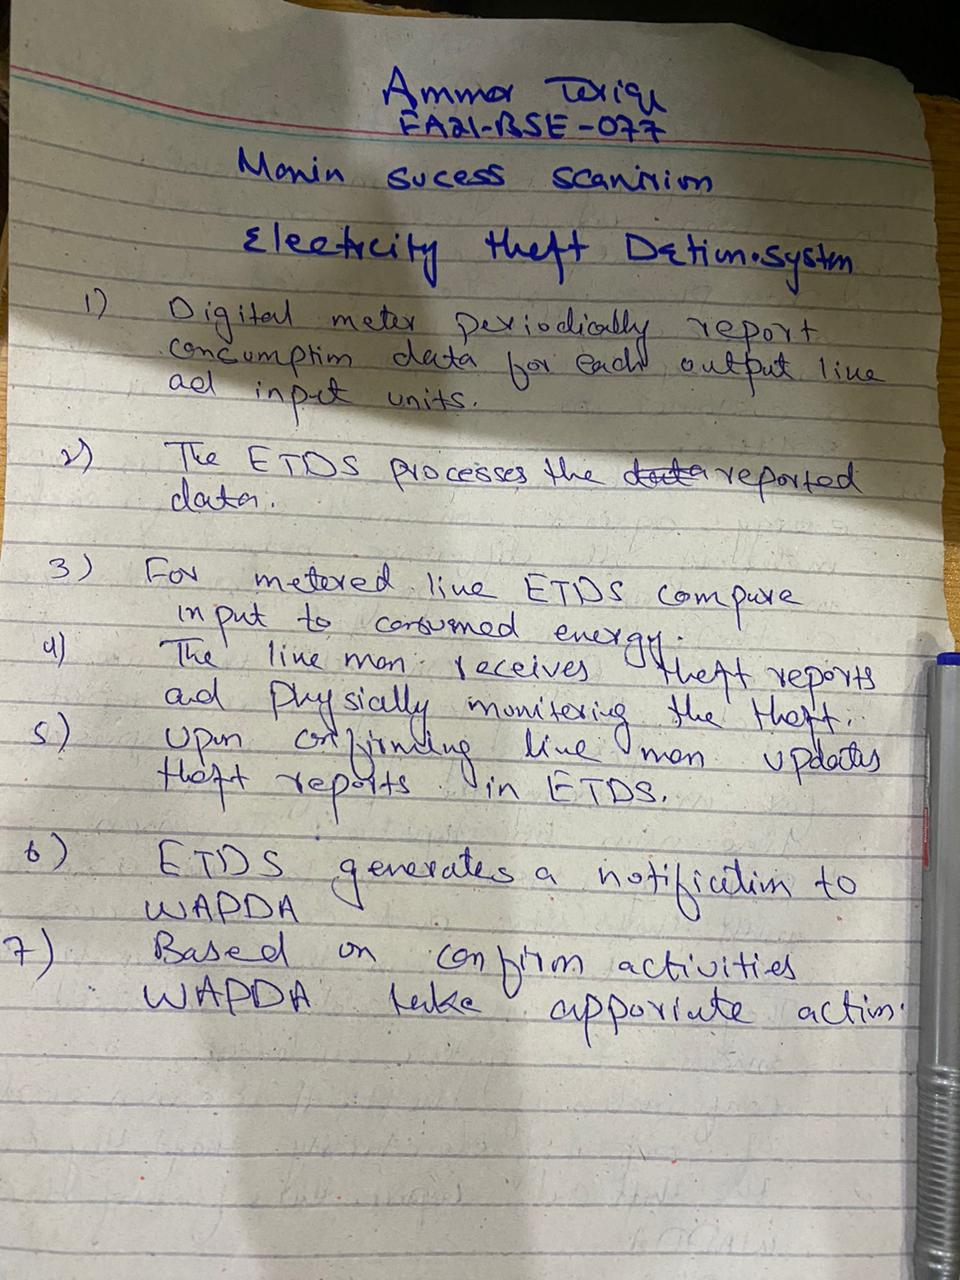 Ammar Tariq
FA21-BSE-077
Manin sucess scanirion
Electricity theft Detion.system
1) Digital meter periodically report
consumption data for each output line
ad input units.
2) The ETDS processes the data reported
data.
3) For metered line ETDS compare
input to consumed energy.
4) The line man receives theft reports
ad physially monitering the theft.
5) Upon confirming line man updates
theft reports in ETDS.
6) ETDS generates a notification to
WAPDA
7) Based on confirm activities
WAPDA take apporiate action.